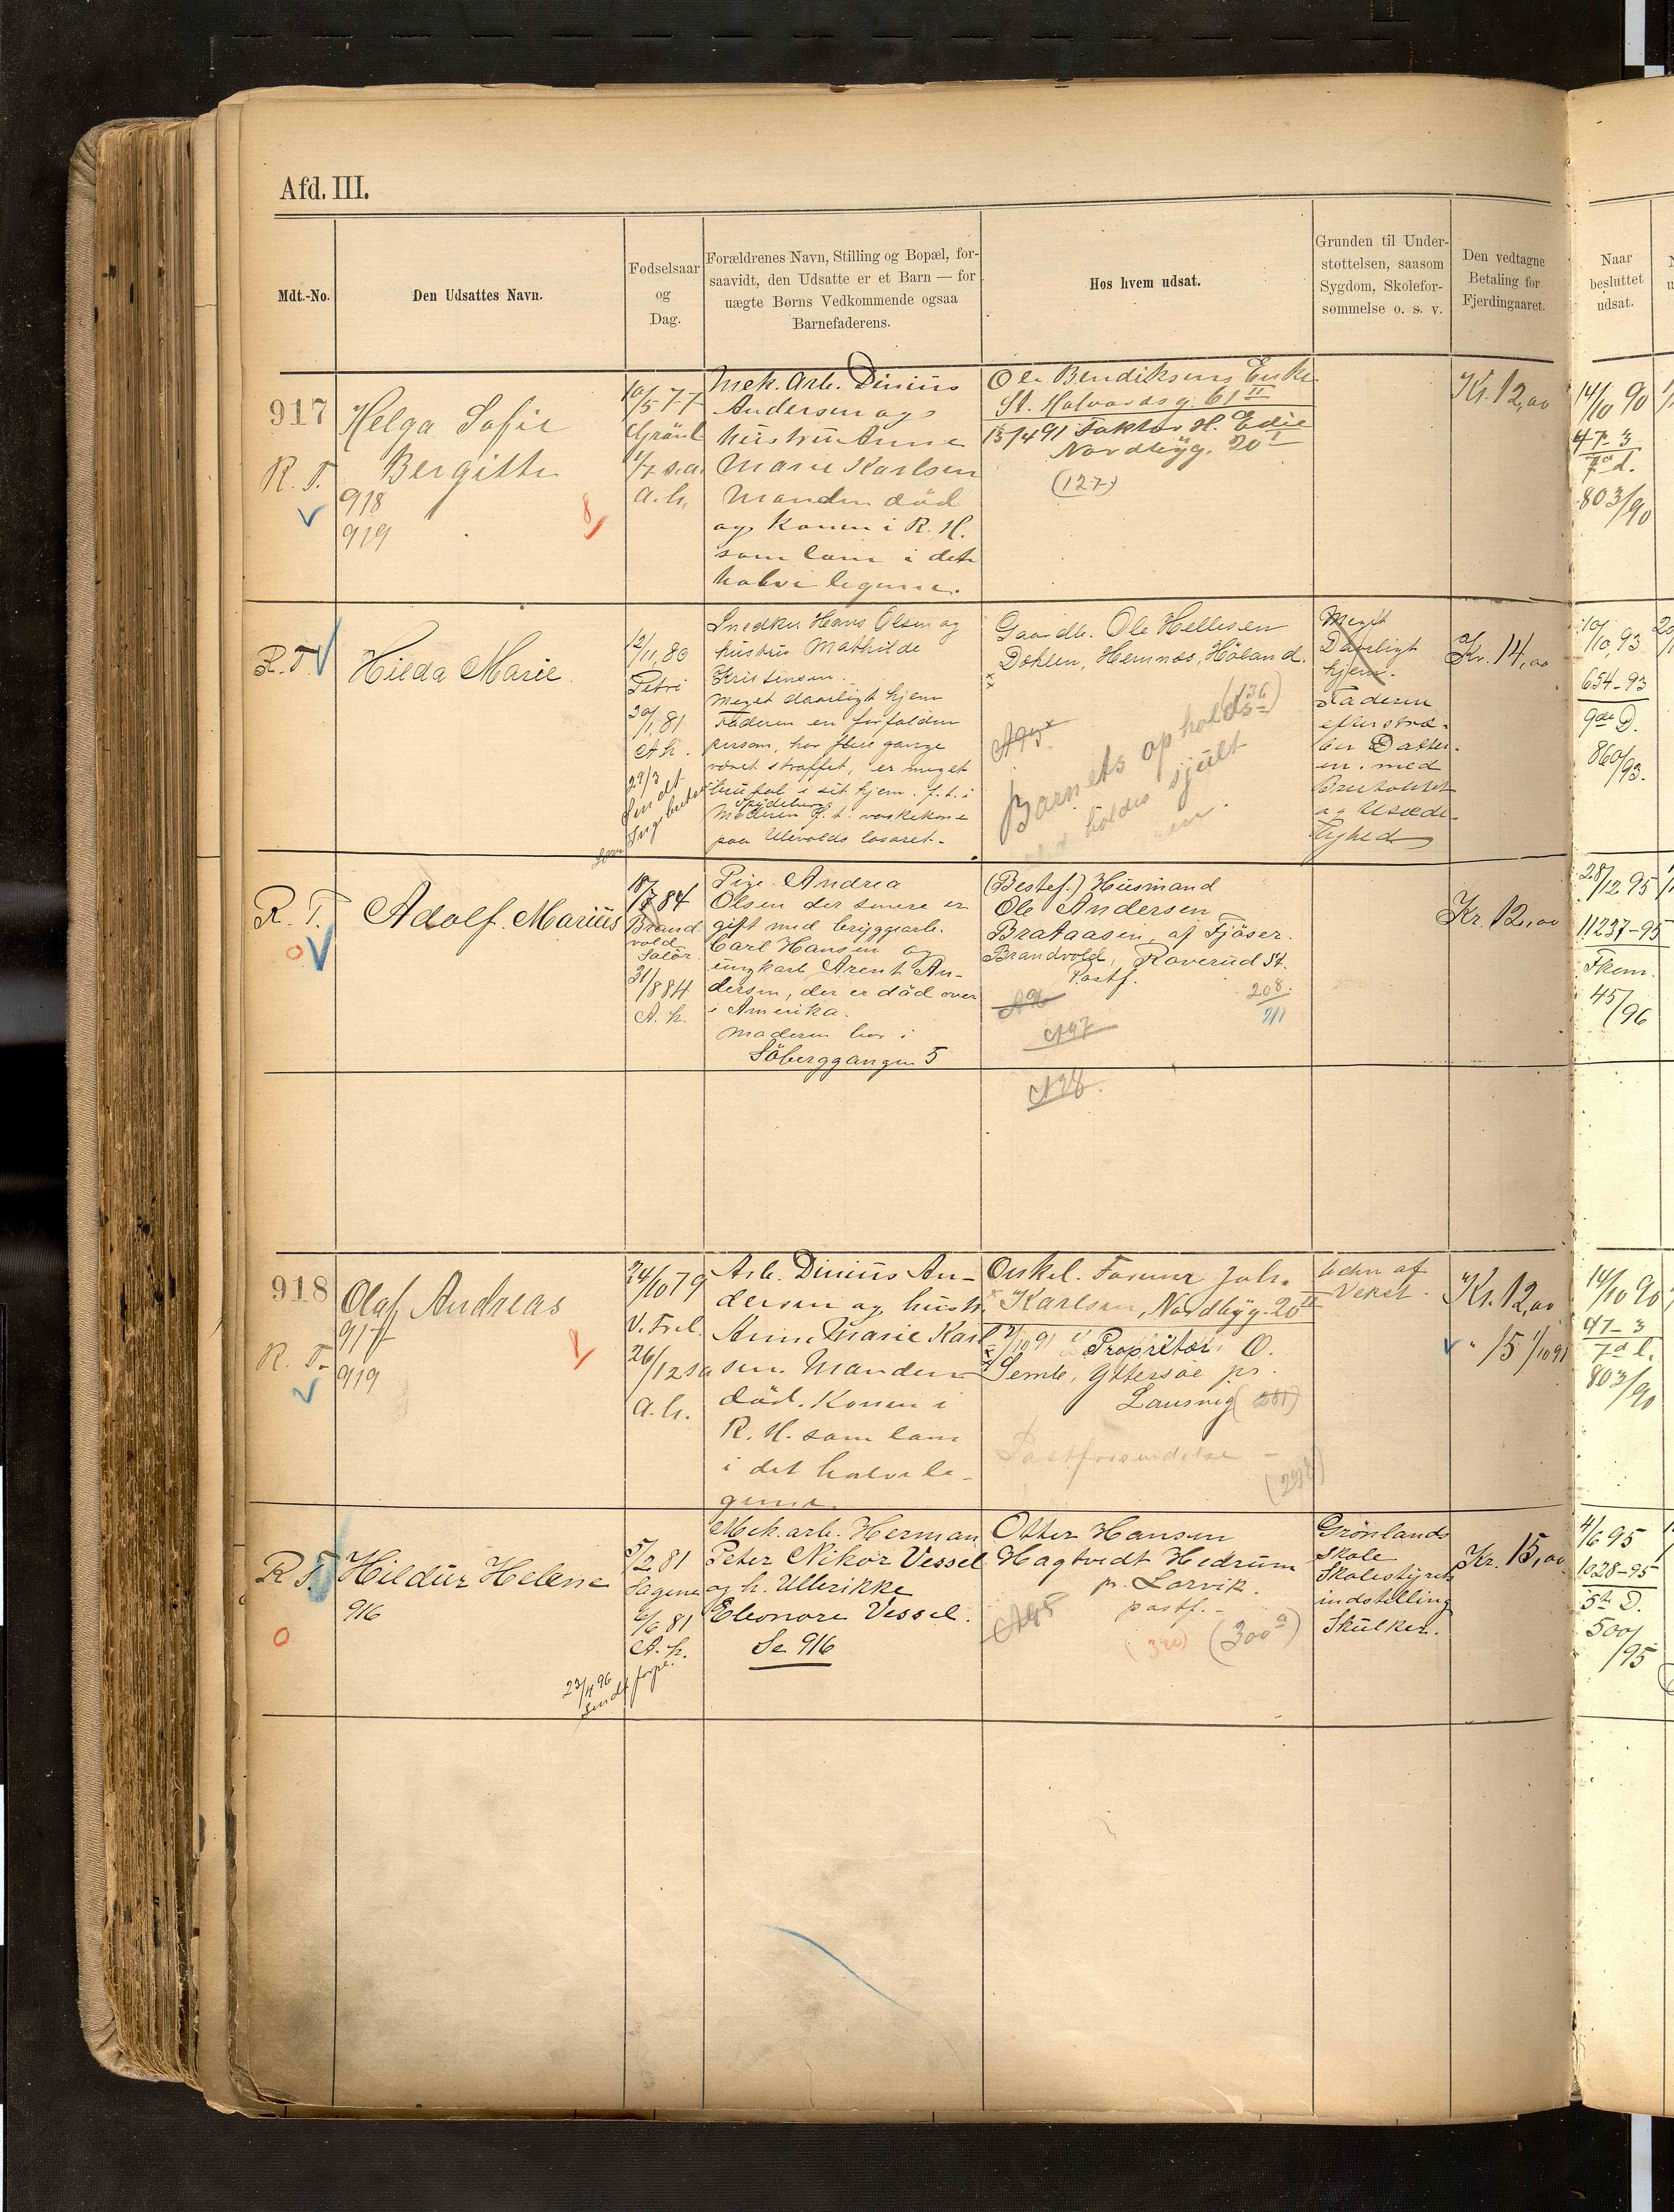 Afd. III.
Mdt.-No.
Den Udsattes Navn.
Fødselsaar
og
Dag.
Forældrenes Navn, Stilling og Bopæl, for-
saavidt, den Udsatte er et Barn — for
uægte Børns Vedkommende ogsaa
Barnefaderens.
Hos hvem udsat.
Grunden til Under-
støttelsen, saasom
Sygdom, Skolefor-
sømmelse o. s. v.
Den vedtagne
Betaling for
Fjerdingaaret.
Naar
besluttet
udsat.
917
R. T.
Helga Sofie
Bergitte
918
919
10/5 77
Grönl
1/7 s.a.
a. h.
Mek. Arb. Dinius
Andersen og
hustru Anne
Marie Karlsen
Manden död
og Konen i R. H.
som lam i det
halve legeme.
Ole Bendiksens Enke
St. Halvards g. 61 II
15/4 91 Faktor H. Edie
Nordbyg. 20 I
(127)
Kr. 12,00
14/10 90
47-3
7de d.
803/90
R. T.
Hilda Marie
12/11 80
Petri
30/1 81
A. h.
29/3
Sendt
Snedker Hans Olsen og
hustru Mathilde
Kristensen.
Meget daarligt hjem
Faderen en forfalden
person, har flere gange
været straffet, er meget
brutal i sit hjem. f. t. i
Moderen f. t. vaskekone
paa Ulevolds lasaret.
Gaardb. Ole Hellesen
Dohlen, Hemnæs, Höland.
(136)
A 95
Barnets ophold
holdes skjult
Meget
Daarligt
hjem.
Faderen
efterstræ-
ber Datter-
en. med
Brutalitet
og Usæde-
lighed
Kr. 14,00
10/10 93
654-93
9de D.
860/93.
R. T.
Adolf Marius
18/7 84
Brand
vold
Solör
31/8 84
A. h.
Pige Andrea
Olsen der senere er
gift med bryggearb.
Carl Hansen og
ungkarl Arent An-
dersen, der er död over
i Amerika.
Moderen bor i
Söberggangen 5
(Bestef.) Husmand
Ole Andersen
Brataasen af Fjöser.
Brandvold, Roverud St.
Postf.
208.
211
A 97
A 98.
Kr. 12,00
28/12 95
11237-95
Fkom.
45/96
918
R. T.
Olaf Andreas
917
919
24/10 79
V. Frel.
26/12 s.a
a. h.
Arb. Dinius An-
dersen og hustr.
Anne Marie Karl
sen. Manden
död. Konen i
R. H. som lam
i det halve le-
geme.
Onkel. Former Joh.
Karlsen, Nordbyg. 20
1/10 91 Proprietær O.
Semb, Yttersöe pr.
Laurvig (281)
Postforsendelse
af
Vekst.
Kr. 12,00
" 15 1/10 91
14/10 90
47-3
7de d.
803/90
R T.
Hildur Helene
916
5/2 81
Sagene
6/6 81
A. h.
23/4 96
Sendt forpl.
Mek. arb. Herman
Peter Nikor Vessel
og h. Ullerikke
Eleonore Vessel.
Se 916
Otter Hansen
Hagtvedt Hedrum
pr. Larvik.
postf.
A 95
(340)
(300 a)
Grönlands
Skole
Skolestyrets
indstilling
Skulker.
Kr. 15,00
4/6 95
1028-95
5te D.
500/95